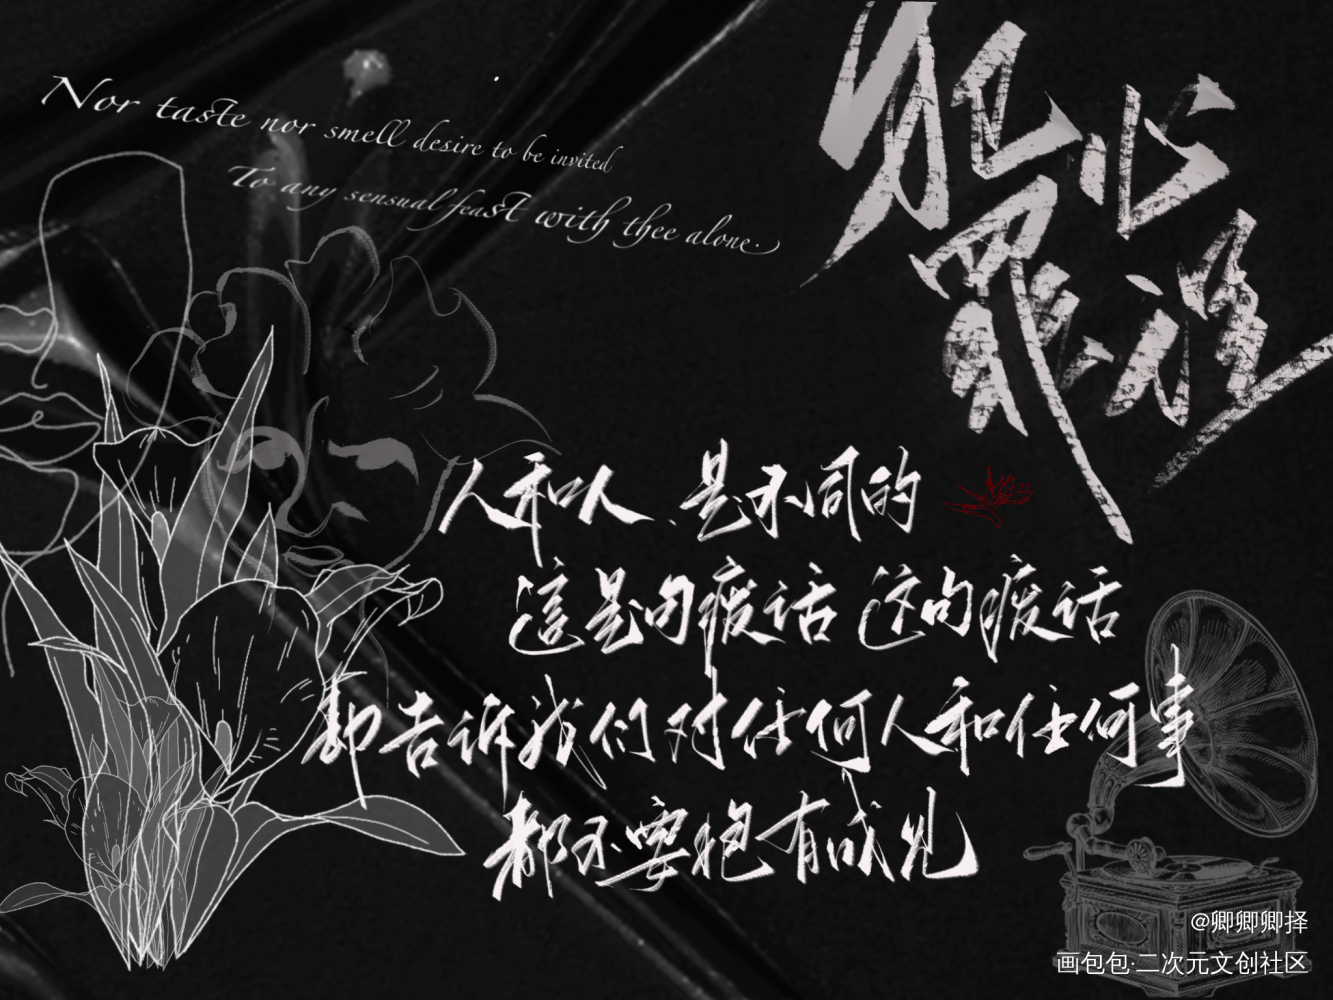 Nor taste nor smell desire to be invited
To any sensual feast with thee alone.
犯心
罪理
人和人、是不同的
這是句废话 这句废话
却告诉我们对任何人和任何事
都不要抱有成见
@卿卿卿择
画包包·二次元文创社区